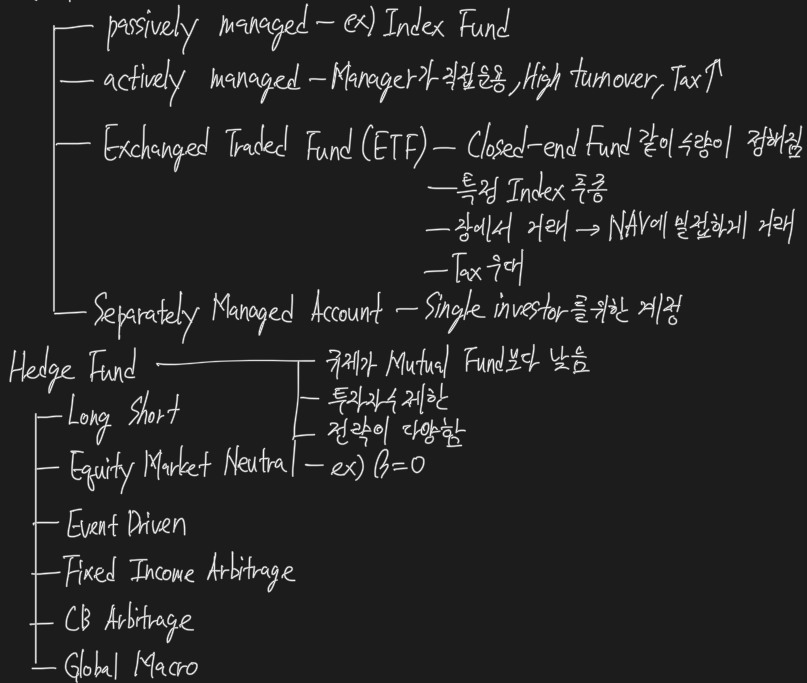 passively managed - ex) Index Fund
actively managed - Manager가 직접운용, High turnover, Tax↑
Exchanged Traded Fund (ETF) - Closed-end Fund 같이 수량이 정해짐
- 특정 Index 추종
- 장에서 거래 → NAV에 밀접하게 거래
- Tax 우대
Separately Managed Account - Single investor를 위한 계정
Hedge Fund - 규제가 Mutual Fund보다 낮음
Long Short - 투자자수 제한
- 전략이 다양함
Equity Market Neutral - ex) β=0
Event Driven
Fixed Income Arbitrage
CB Arbitrage
Global Macro